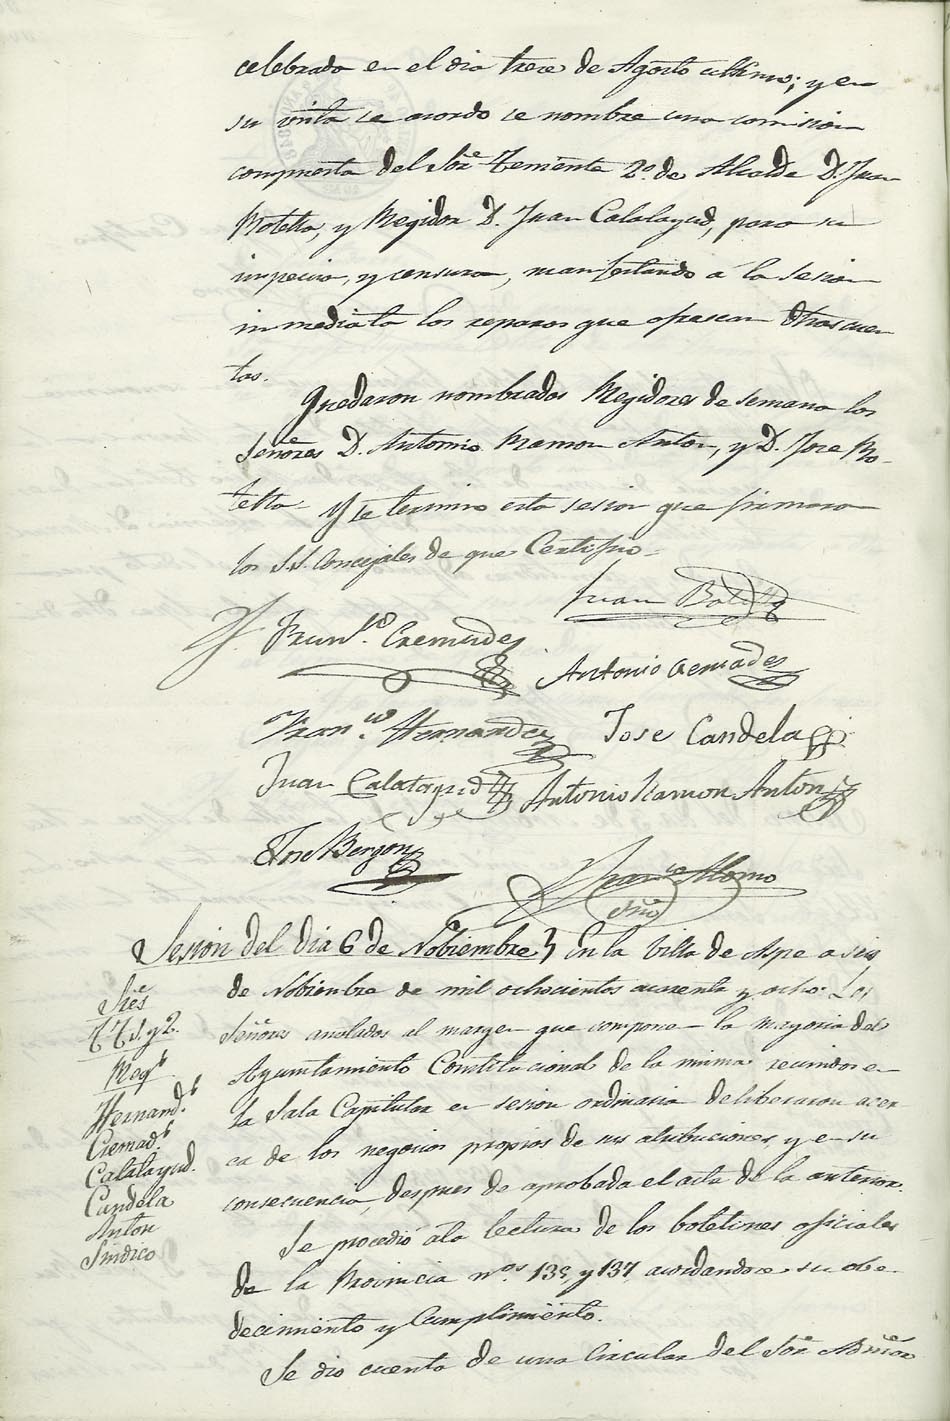 celebrada en el dia trece de Agosto ultimo; y en
su vista se acordo se nombre una comision
compuesta del Sor. Teniente 2º. de Alcalde D. Juan
Botella, y Regidor D. Juan Calatayud, para su
inspecion, y censura, manifestando á la sesion
inmediata los reparos que ofrescan dhas cuen
tas.
Quedaron nombrados Regidores de semana los
Señores D. Antonio Ramon Anton, y D. Jose Bo-
tella. Y se termino esta sesion que firmaron
los S.S. Concejales de que Certifico=
Juan Botella
Franco. Cremades
Antonio Cremades
Franco. Hernandez Jose Candela
Juan Calatayud Antonio Ramon Anton
Jose Bergon
Franco. Alonso
Srio
Sesion del dia 6 de Nobiembre } En la Villa de Aspe a seis
de Nobienbre de mil ochocientos cuarenta y ocho: Los
Señores anotados al margen que componen la mayoria del
Ayuntamiento Constitucional de la misma reunidos en
la Sala Capitular en sesion ordinaria deliberaron acer
ca de los negocios propios de sus atribuciones, y en su
consecuencia, despues de aprobada el acta de la anterior.
Sres
T.T. 1. y 2.
Regs
Hernands
Cremads
Calatayud.
Candela
Anton
Sindico
Se procedió á la lectura de los boletines oficiales
de la Provincia nos. y 137, acordandose su obe-
decimiento y Cumplimiento.
Se dio cuenta de una Circular del Sor. Admor